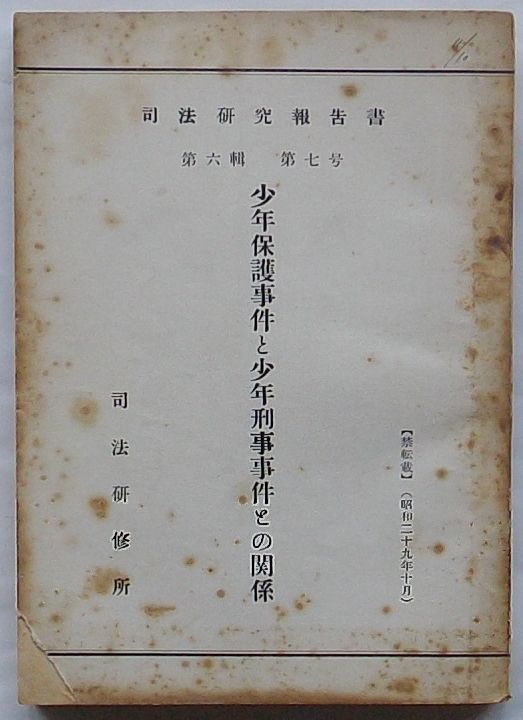 司法研究報告書
第六輯 第七号
少年保護事件と少年刑事事件との関係
【禁転載】 (昭和二十九年十月)
司法研修所